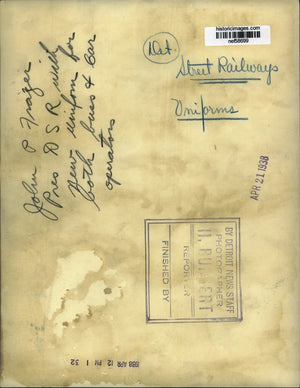 historicimages.com
nef58699
Det.
Street Railways
Uniforms
John P Frazer
Pres DSR with
New uniform for
both bus & car
operators
APR 21 1938
BY DETROIT NEWS STAFF
PHOTOGRAPHER
REPORTER
FINISHED BY
1938 APR 12 PM 1 32